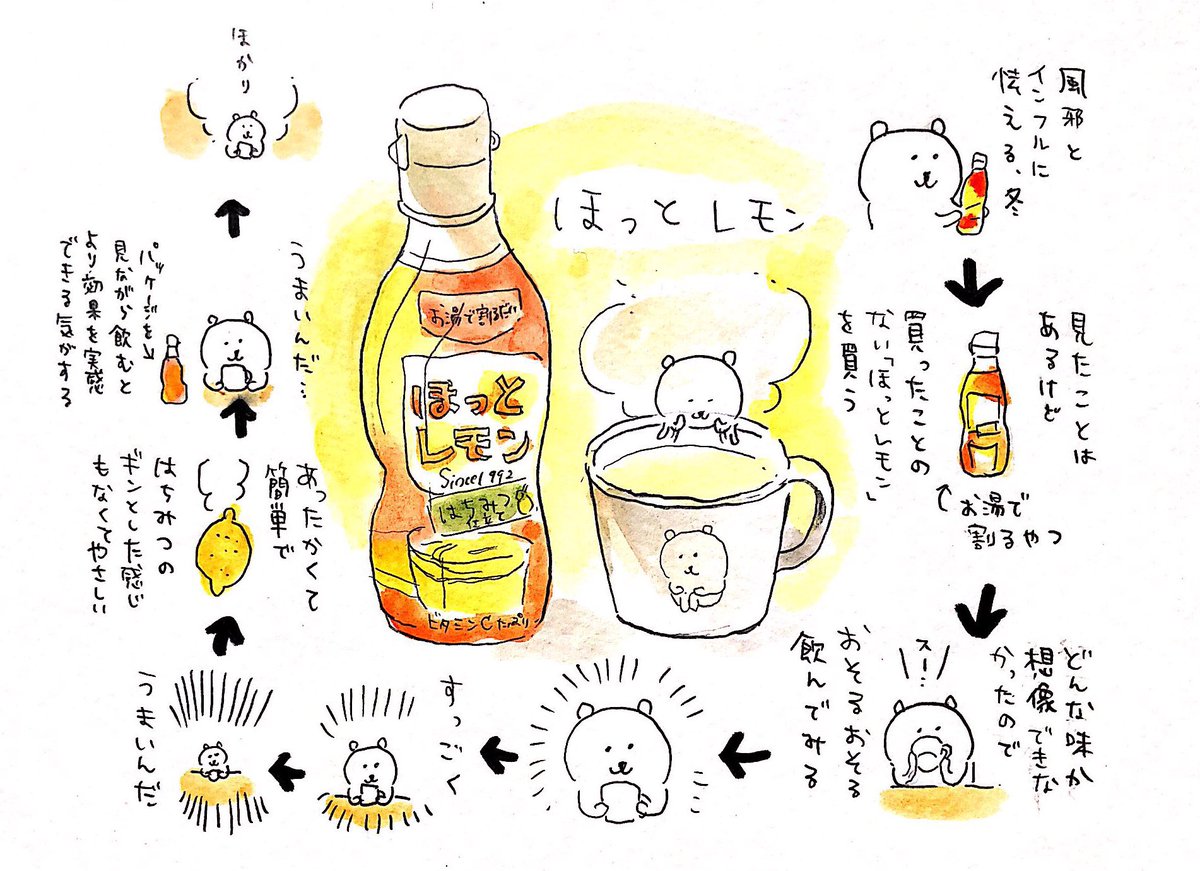 ほっとレモン
風邪と
インフルに
怯える、冬
見たことは
あるけど
買ったことの
ない「ほっとレモン」
を買う
お湯で
割るやつ
どんな味か
想像できな
かったので
おそるおそる
飲んでみる
スー…
すっごく
うまいんだ
あったかくて
簡単で
はちみつの
ギンとした感じ
もなくてやさしい
うまいんだ…
パッケージを
見ながら飲むと
より効果を実感
できる気がする
ほかり
お湯で割るだけ
ほっと
レモン
Since1992
はちみつ
仕立て
ビタミンCたっぷり